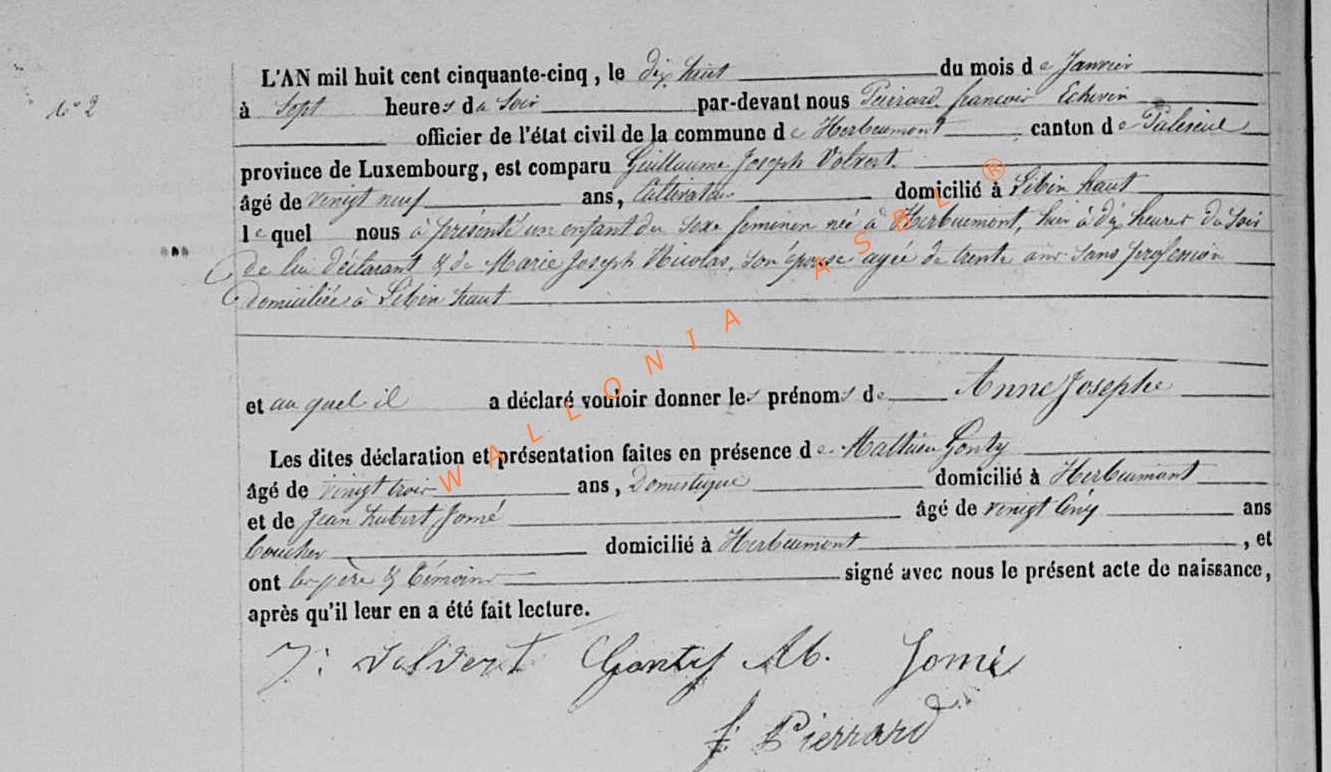 N° 2
L'AN mil huit cent cinquante-cinq, le dix huit du mois de Janvier
à Sept heures du Soir par-devant nous Pierrard françois Echevin
officier de l'état civil de la commune de Herbeumont canton de Paliseul
province de Luxembourg, est comparu Guillaume Joseph Volvert.
âgé de vingt neuf ans, Cultivateur domicilié à Libin haut
lequel nous à présenté un enfant du sexe feminin né à Herbeumont, hier à dix heures du Soir
de lui déclarant & de Marie Joseph Nicolas, son épouse agée de trente ans sans profession
domiciliée à Libin haut
et au quel il a déclaré vouloir donner les prénoms de Anne Josephe
Les dites déclaration et présentation faites en présence de Mathieu Gonty
âgé de vingt trois ans, Domestique domicilié à Herbeumont
et de Jean hubert Jomé âgé de vingt Cinq ans
boucher domicilié à Herbeumont, et
ont les père & témoins signé avec nous le présent acte de naissance,
après qu'il leur en a été fait lecture.
J: Volvert Gonty M. Jomé
f: Pierrard
WALLONIA ASBL ®